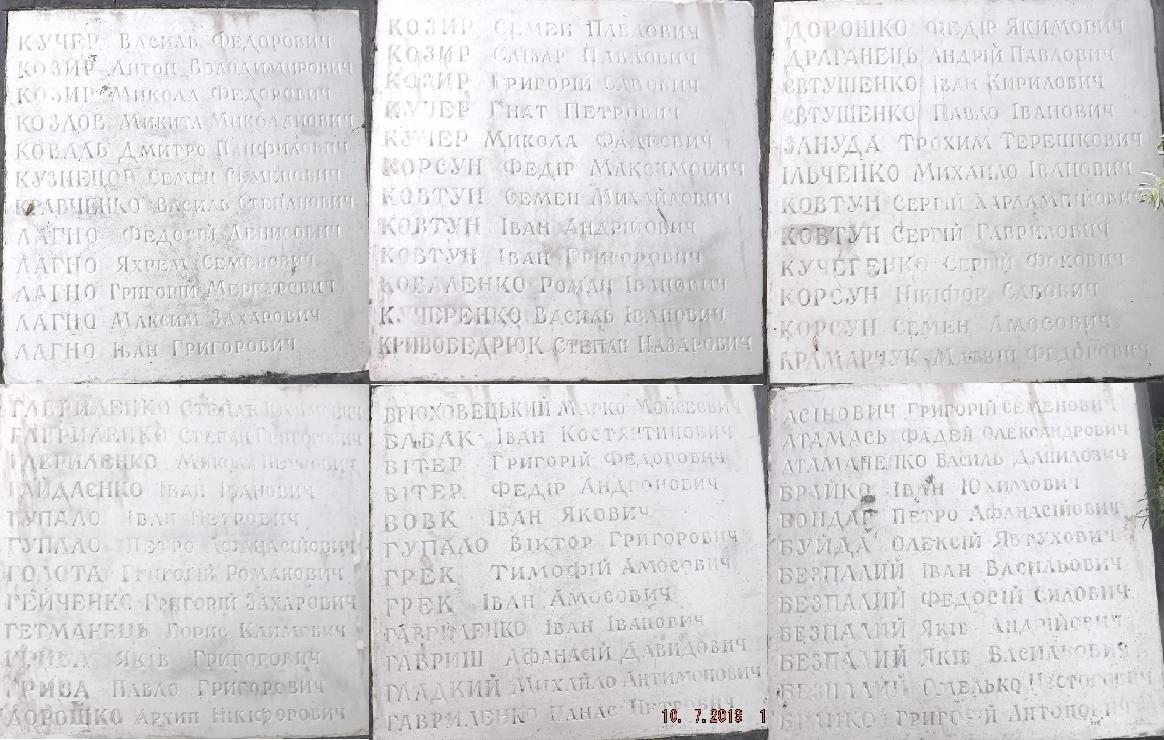 КУЧЕР ВАСИЛЬ ФЕДОРОВИЧ
КОЗИР АНТОН ВОЛОДИМИРОВИЧ
КОЗИР МИКОЛА ФЕДОРОВИЧ
КОЗЛОВ МИКИТА МИКОЛАЙОВИЧ
КОВАЛЬ ДМИТРО ПАНФИЛОВИЧ
КУЗНЕЦОВ СЕМЕН СЕМЕНОВИЧ
КРАВЧЕНКО ВАСИЛЬ СТЕПАНОВИЧ
ЛАГНО ФЕДОРІЙ ДЕНИСОВИЧ
ЛАГНО ЯХРЕМ СЕМЕНОВИЧ
ЛАГНО ГРИГОРІЙ МЕРКУРЕВИЧ
ЛАГНО МАКСИМ ЗАХАРОВИЧ
ЛАГНО ІВАН ГРИГОРОВИЧ
КОЗИР СЕМЕН ПАВЛОВИЧ
КОЗИР ПАВЛОВИЧ
КОЗИР ГРИГОРІЙ САВОВИЧ
КУЧЕР ГНАТ ПЕТРОВИЧ
КУЧЕР МИКОЛА ФАДЕЄВИЧ
КОРСУН ФЕДІР МАКСИМОВИЧ
КОВТУН СЕМЕН МИХАЙЛОВИЧ
КОВТУН ІВАН АНДРІЙОВИЧ
КОВТУН ІВАН ГРИГОРОВИЧ
КОВАЛЕНКО РОМАН ІВАНОВИЧ
КУЧЕРЕНКО ВАСИЛЬ ІВАНОВИЧ
КРИВОБЕДРЮК СТЕПАН НАЗАРОВИЧ
ДОРОШКО ФЕДІР ЯКИМОВИЧ
ДРАГАНЕЦЬ АНДРІЙ ПАВЛОВИЧ
ЄВТУШЕНКО ІВАН КИРИЛОВИЧ
ЄВТУШЕНКО ПАВЛО ІВАНОВИЧ
ЗАНУДА ТРОХИМ ТЕРЕШКОВИЧ
ІЛЬЧЕНКО МИХАЙЛО ІВАНОВИЧ
КОВТУН СЕРГІЙ ХАРЛАМПІЙОВИЧ
КОВТУН СЕРГІЙ ГАВРИЛОВИЧ
КУЧЕРЕНКО СЕРГІЙ ФОКОВИЧ
КОРСУН НІКІФОР САВОВИЧ
КОРСУН СЕМЕН АМОСОВИЧ
КРАМАРЧУК МАТВІЙ ФЕДОРОВИЧ
ГАВРИЛЕНКО СТЕПАН ЮХИМОВИЧ
ГАВРИЛЕНКО СТЕПАН ГРИГОРОВИЧ
ГАВРИЛЕНКО МИКОЛА ПЕТРОВИЧ
ГАЙДАЄНКО ІВАН ІВАНОВИЧ
ГУПАЛО ІВАН ПЕТРОВИЧ
ГУПАЛО ПЕТРО АФАНАСІЙОВИЧ
ГОЛОТА ГРИГОРІЙ РОМАНОВИЧ
ГЕЙЧЕНКО ГРИГОРІЙ ЗАХАРОВИЧ
ГЕТМАНЕЦЬ БОРИС КЛИМОВИЧ
ГРИВА ЯКІВ ГРИГОРОВИЧ
ГРИВА ПАВЛО ГРИГОРОВИЧ
ДОРОШКО АРХИП НІКІФОРОВИЧ
БРЮХОВЕЦЬКИЙ МАРКО МОЙСЕЄВИЧ
БАБАК ІВАН КОСТЯНТИНОВИЧ
ВІТЕР ГРИГОРІЙ ФЕДОРОВИЧ
ВІТЕР ФЕДІР АНДРОНОВИЧ
ВОВК ІВАН ЯКОВИЧ
ГУПАЛО ВІКТОР ГРИГОРОВИЧ
ГРЕК ТИМОФІЙ АМОСОВИЧ
ГРЕК ІВАН АМОСОВИЧ
ГАВРИЛЕНКО ІВАН ІВАНОВИЧ
ГАВРИШ АФАНАСІЙ ДАВИДОВИЧ
ГЛАДКИЙ МИХАЙЛО АНТИМОНОВИЧ
ГАВРИЛЕНКО ПАНАС ПЕТРОВИЧ
10. 7.2018 1
АСІНОВИЧ ГРИГОРІЙ СЕМЕНОВИЧ
АТАМАСЬ ФАДЕЙ ОЛЕКСАНДРОВИЧ
АТАМАНЕНКО ВАСИЛЬ ДАНИЛОВИЧ
БРАЙКО ІВАН ЮХИМОВИЧ
БОНДАР ПЕТРО АФАНАСІЙОВИЧ
БУЙДА ОЛЕКСІЙ ЯВТУХОВИЧ
БЕЗПАЛИЙ ІВАН ВАСИЛЬОВИЧ
БЕЗПАЛИЙ ФЕДОСІЙ СИЛОВИЧ
БЕЗПАЛИЙ ЯКІВ АНДРІЙОВИЧ
БЕЗПАЛИЙ ЯКІВ ВАСИЛЬОВИЧ
БЕЗПАЛИЙ ОМЕЛЬКО
ГРИГОРІЙ АНТОНОВИЧ